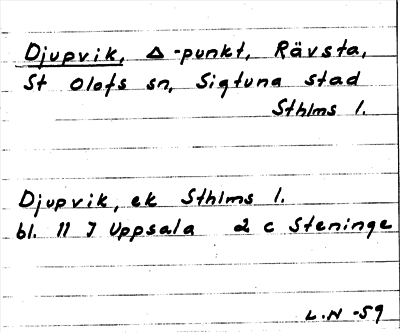 Djupvik, Δ-punkt, Rävsta,
St Olofs sn, Sigtuna stad
Sthlms l.
Djupvik, ek Sthlms l.
bl. 11 I Uppsala 2 c Steninge
L.N -59